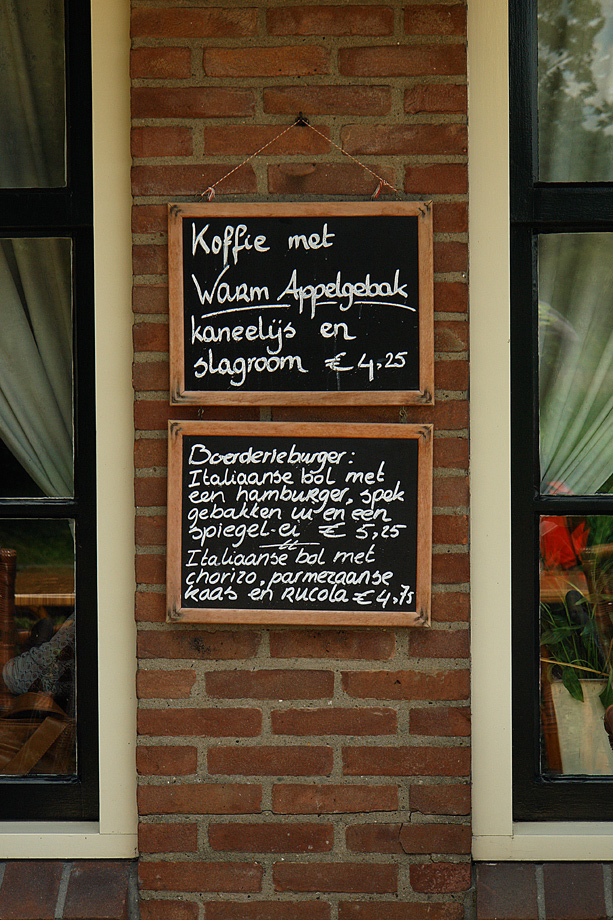 Koffie met
Warm Appelgebak
kaneelijs en
slagroom € 4,25
Boerderieburger:
Italiaanse bol met
een hamburger, spek
gebakken ui en een
spiegel-ei € 5,25
Italiaanse bol met
chorizo, parmezaanse
kaas en Rucola € 4,75